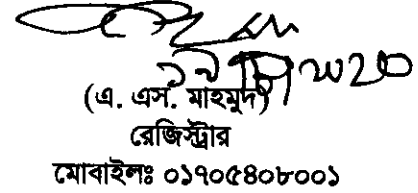 (এ. এস. মাহমুদ)
রেজিস্ট্রার
মোবাইলঃ ০১৭০৫৪০৮০০১